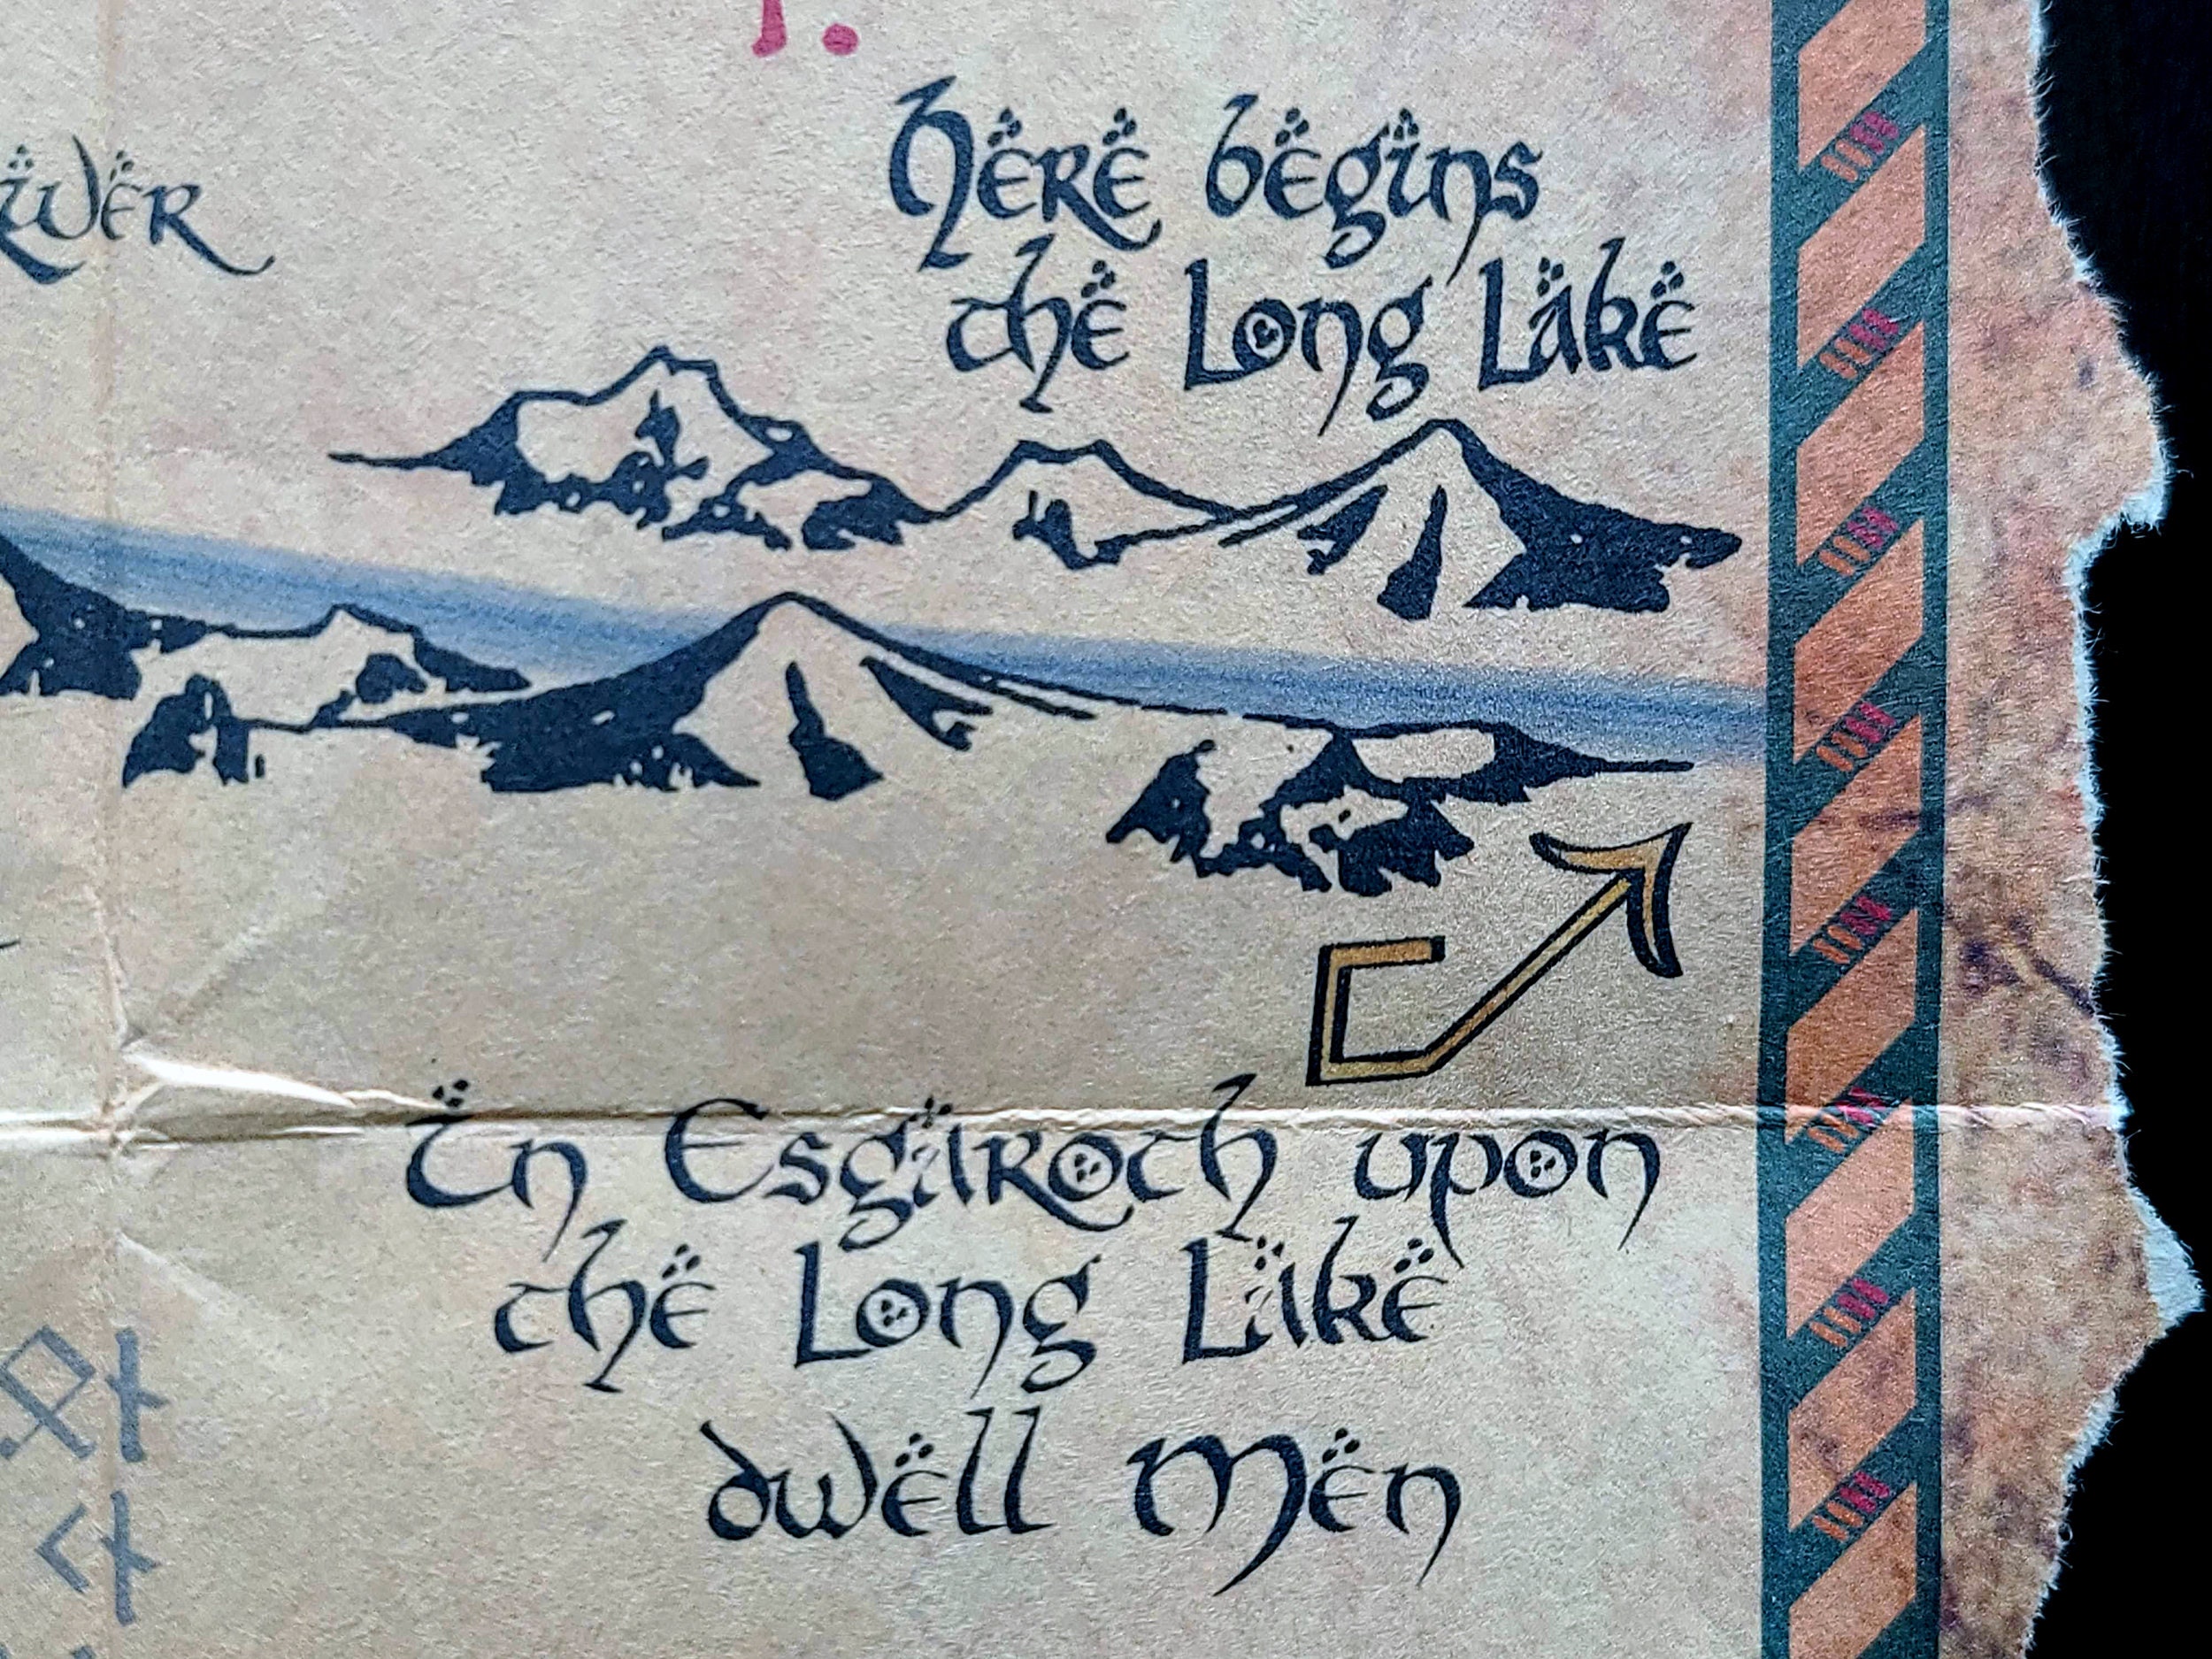 Here begins
the Long Lake
In Esgaroth upon
the Long Lake
dwell Men